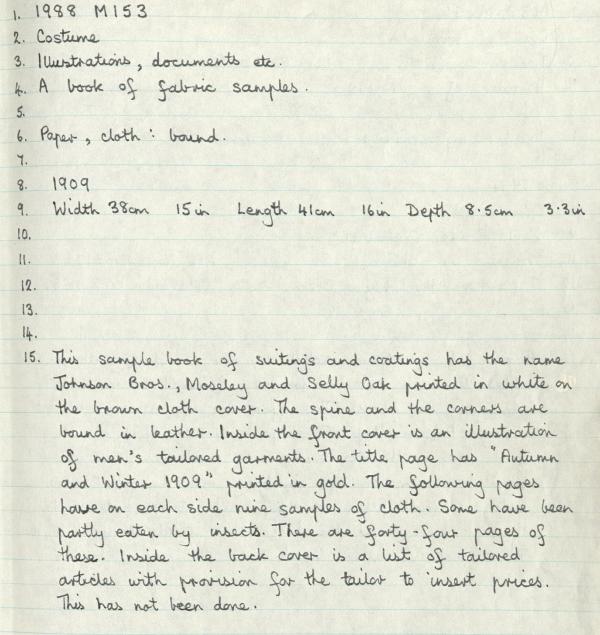 1. 1988 M153
2. Costume
3. Illustrations, documents etc.
4. A book of fabric samples.
5.
6. Paper, cloth : bound.
7.
8. 1909
9. Width 38cm 15in Length 41cm 16in Depth 8.5cm 3.3in
10.
11.
12.
13.
14.
15. This sample book of suitings and coatings has the name
Johnson Bros., Moseley and Selly Oak printed in white on
the brown cloth cover. The spine and the corners are
bound in leather. Inside the front cover is an illustration
of men's tailored garments. The title page has "Autumn
and Winter 1909" printed in gold. The following pages
have on each side nine samples of cloth. Some have been
partly eaten by insects. There are forty-four pages of
these. Inside the back cover is a list of tailored
articles with provision for the tailor to insert prices.
This has not been done.